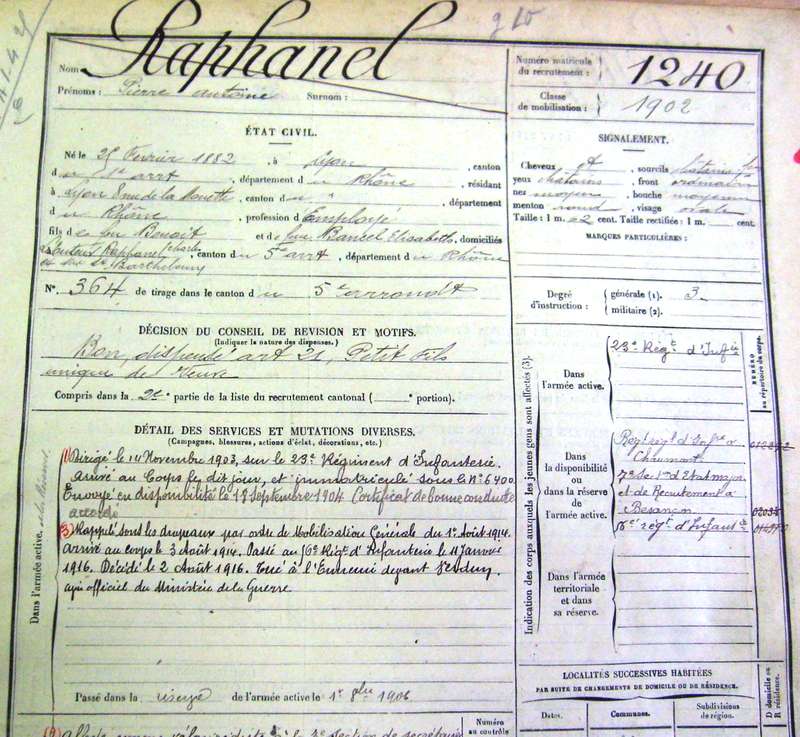 Nom
Raphanel
Prénoms : Pierre Antoine Surnom :
Numéro matricule
du recrutement :
1240
Classe
de mobilisation :
1902
ÉTAT CIVIL.
Né le 25 Février 1882, à Lyon, canton
d u 1er arrt, département d u Rhône, résidant
à Lyon, canton d u, département
d u Rhône, profession d' Employé
fils d e feu Benoît et d e feue Bancel Elisabeth, domiciliés
Raphanel Charles, canton d u 5e arrt, département d u Rhône
Barthélemy
N° 364 de tirage dans le canton d u 5e arrondt
SIGNALEMENT.
Cheveux et, sourcils châtains
yeux châtains, front ordinaire
nez moyen, bouche moyenne
menton rond, visage ovale
Taille : 1 m. 62 cent. Taille rectifiée : 1 m. cent.
MARQUES PARTICULIÈRES :
Degré
d'instruction :
générale (1). 3
militaire (2).
DÉCISION DU CONSEIL DE REVISION ET MOTIFS.
(Indiquer la nature des dispenses.)
Bon, dispensé art 21, Petit Fils
unique de Veuve
Compris dans la 2e partie de la liste du recrutement cantonal ( portion).
DÉTAIL DES SERVICES ET MUTATIONS DIVERSES.
(Campagnes, blessures, actions d'éclat, décorations, etc.)
(1) Dirigé le 14 Novembre 1903, sur le 23e Régiment d'Infanterie.
Arrivé au Corps le dit jour, et immatriculé sous le N° 6400.
Envoyé en disponibilité le 18 Septembre 1904 Certificat de bonne conduite
accordé
(3) Rappelé sous les drapeaux par ordre de Mobilisation Générale du 1er Août 1914.
Arrivé au corps le 3 Août 1914. Passé au 16e Régt d'Infanterie le 11 Janvier
1916. Décédé le 2 Août 1916. Tué à l'Ennemi devant Verdun,
avis officiel du Ministère de la Guerre
Dans l'armée active.
Passé dans la réserve de l'armée active le 1er 8bre 1906
Indication des corps auxquels les jeunes gens sont affectés (3).
NUMÉRO
au répertoire du corps.
Dans
l'armée active.
23e Régt d'Infie
Dans
la disponibilité
ou dans
la réserve
de
l'armée active.
Chaumont
7e Son d'Etat major
et de Recrutement à
Besançon
16e régt d'Infant
Dans l'armée
territoriale
et dans
sa réserve.
LOCALITÉS SUCCESSIVES HABITÉES
PAR SUITE DE CHANGEMENTS DE DOMICILE OU DE RÉSIDENCE.
Dates. Communes. Subdivisions
de région.
D domicile ou
R résidence.
Numéro
au contrôle